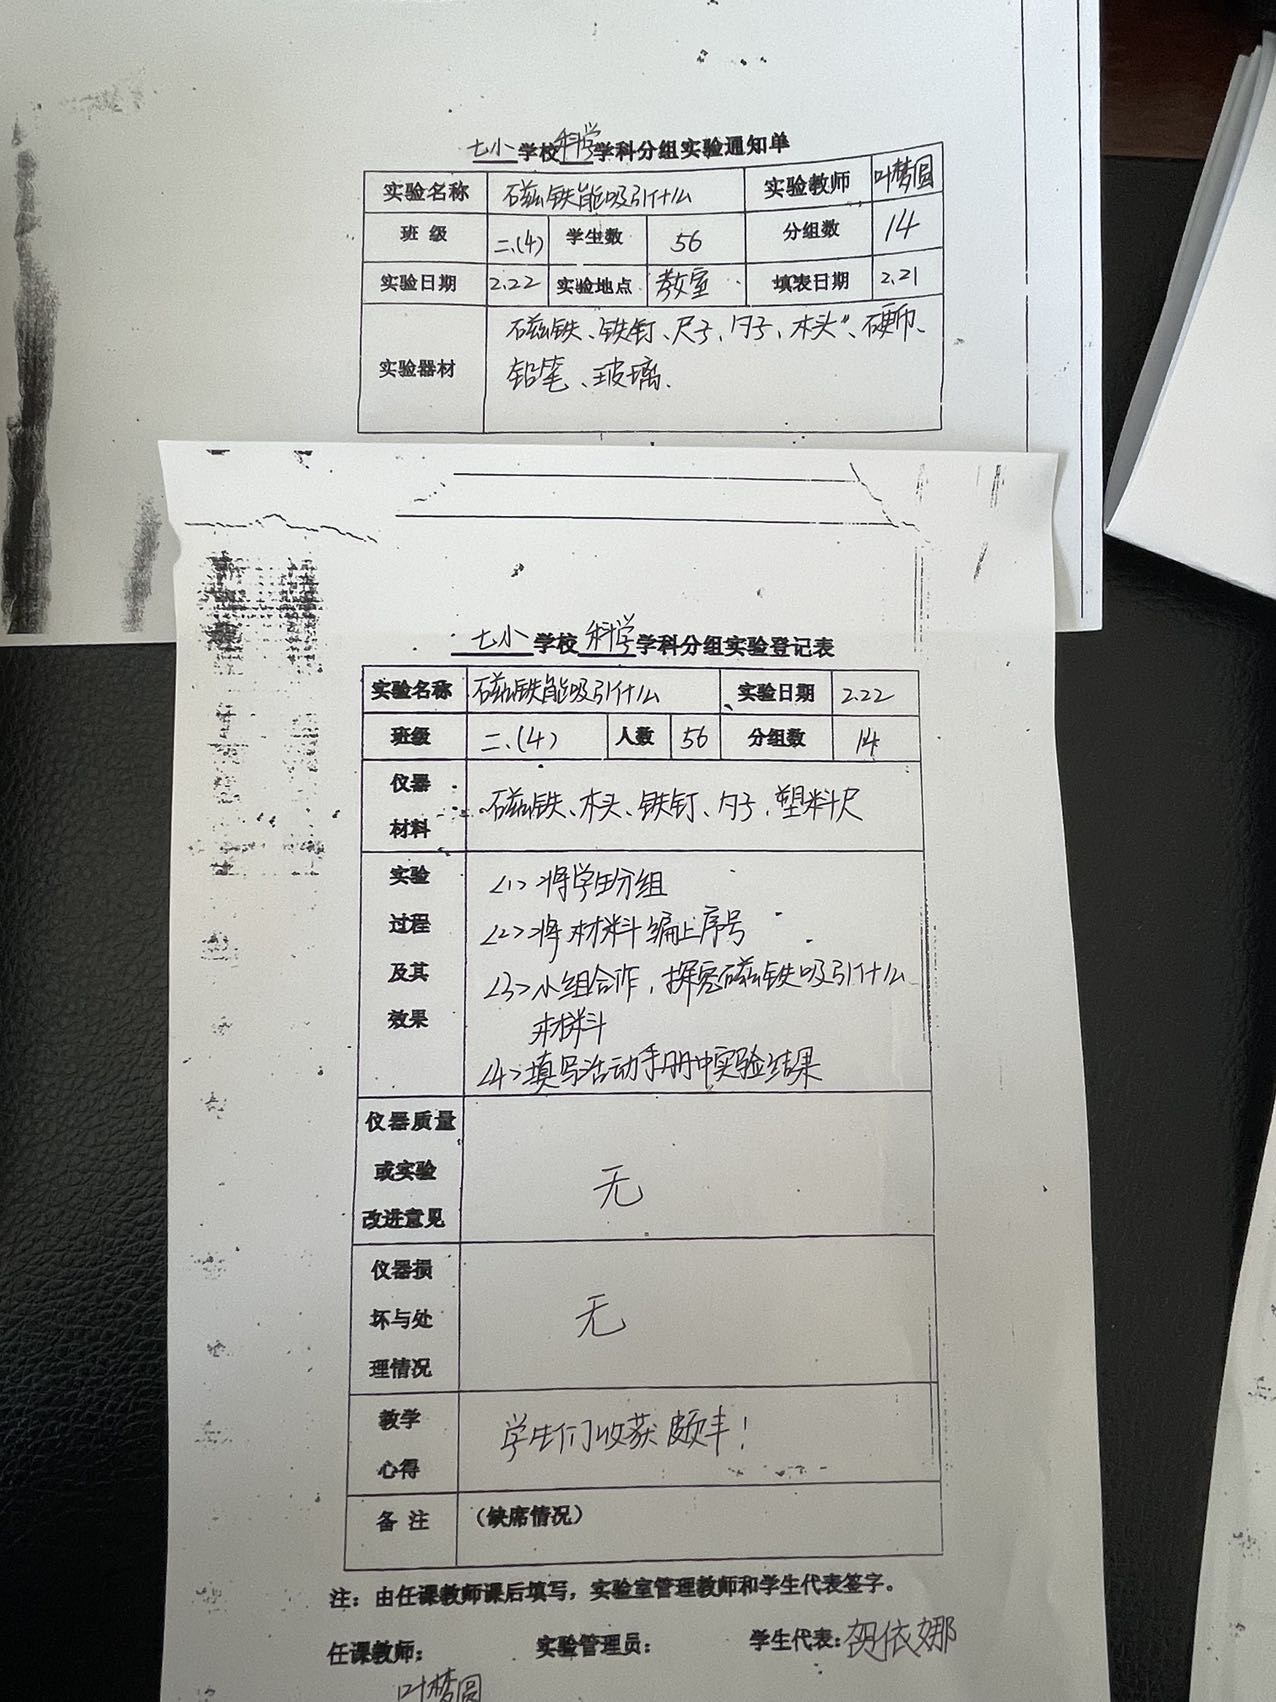 七小 学校 科学 学科分组实验通知单
实验名称 磁铁能吸引什么 实验教师 叶梦圆
班 级 二.(4) 学生数 56 分组数 14
实验日期 2.22 实验地点 教室 填表日期 2.21
实验器材 磁铁、铁钉、尺子、勺子、木头、硬币、
铅笔、玻璃.
七小 学校 科学 学科分组实验登记表
实验名称 磁铁能吸引什么 实验日期 2.22
班级 二.(4) 人数 56 分组数 14
仪器
材料
磁铁、木头、铁钉、勺子、塑料尺
实验
过程
及其
效果
<1>将学生分组
<2>将材料编上序号
<3>小组合作,探究磁铁吸引什么
材料
<4>填写活动手册中实验结果
仪器质量
或实验
改进意见
无
仪器损
坏与处
理情况
无
教学
心得
学生们收获颇丰!
备 注 (缺席情况)
注:由任课教师课后填写,实验室管理教师和学生代表签字。
任课教师: 实验管理员: 学生代表: 依娜
叶梦圆